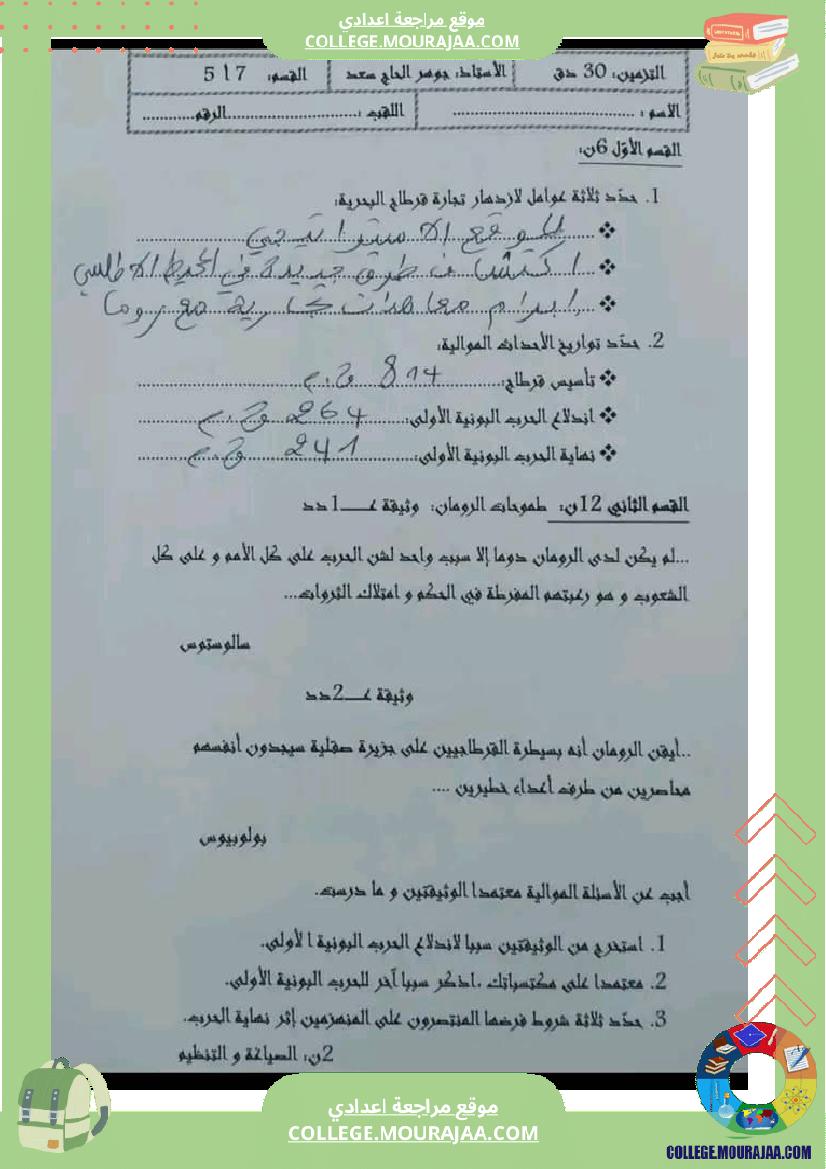 موقع مراجعة اعدادي
COLLEGE.MOURAJAA.COM
التزمين: 30 دق الأستاذ: جوهر الحاج سعد القسم: 7 أ 5
الاسم : ........................................ اللقب :..............................الرقم............
القسم الأوّل 6ن:
1. حدّد ثلاثة عوامل لازدهار تجارة قرطاج البحرية:
❖ الموقع الاستراتيجي
❖ اكتشاف طرق جديدة في المحيط الاطلسي
❖ ابرام معاهدات تجارية مع روما
2. حدّد تواريخ الأحداث الموالية:
❖ تأسيس قرطاج: 814 ق.م
❖ اندلاع الحرب البونية الأولى: 264 ق.م
❖ نهاية الحرب البونية الأولى: 241 ق.م
القسم الثاني 12ن: طموحات الرومان: وثيقة عــ1ـدد
...لم يكن لدى الرومان دوما إلا سبب واحد لشن الحرب على كل الأمم و على كل
الشعوب و هو رغبتهم المفرطة في الحكم و امتلاك الثروات...
سالوستوس
وثيقة عــ2ـدد
..أيقن الرومان أنه بسيطرة القرطاجيين على جزيرة صقلية سيجدون أنفسهم
محاصرين من طرف أعداء خطيرين ....
بولوبيوس
أجب عن الأسئلة الموالية معتمدا الوثيقتين و ما درست.
1. استخرج من الوثيقتين سببا لاندلاع الحرب البونية الأولى.
2. معتمدا على مكتسباتك .اذكر سببا آخر للحرب البونية الأولى.
3. حدّد ثلاثة شروط فرضها المنتصرون على المنهزمين إثر نهاية الحرب.
2ن: الصياغة و التنظيم
موقع مراجعة اعدادي
COLLEGE.MOURAJAA.COM
COLLEGE.MOURAJAA.COM